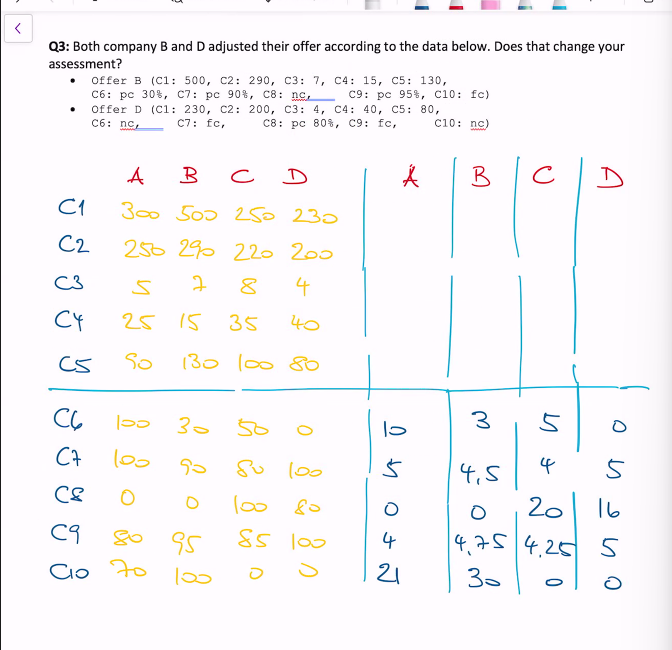 Q3: Both company B and D adjusted their offer according to the data below. Does that change your
assessment?
• Offer B (C1: 500, C2: 290, C3: 7, C4: 15, C5: 130,
C6: pc 30%, C7: pc 90%, C8: nc, C9: pc 95%, C10: fc)
• Offer D (C1: 230, C2: 200, C3: 4, C4: 40, C5: 80,
C6: nc, C7: fc, C8: pc 80%, C9: fc, C10: nc)
A B C D A B C D
C1 300 500 250 230
C2 250 290 220 200
C3 5 7 8 4
C4 25 15 35 40
C5 90 130 100 80
C6 100 30 50 0 10 3 5 0
C7 100 90 80 100 5 4,5 4 5
C8 0 0 100 80 0 0 20 16
C9 80 95 85 100 4 4,75 4,25 5
C10 70 100 0 0 21 30 0 0